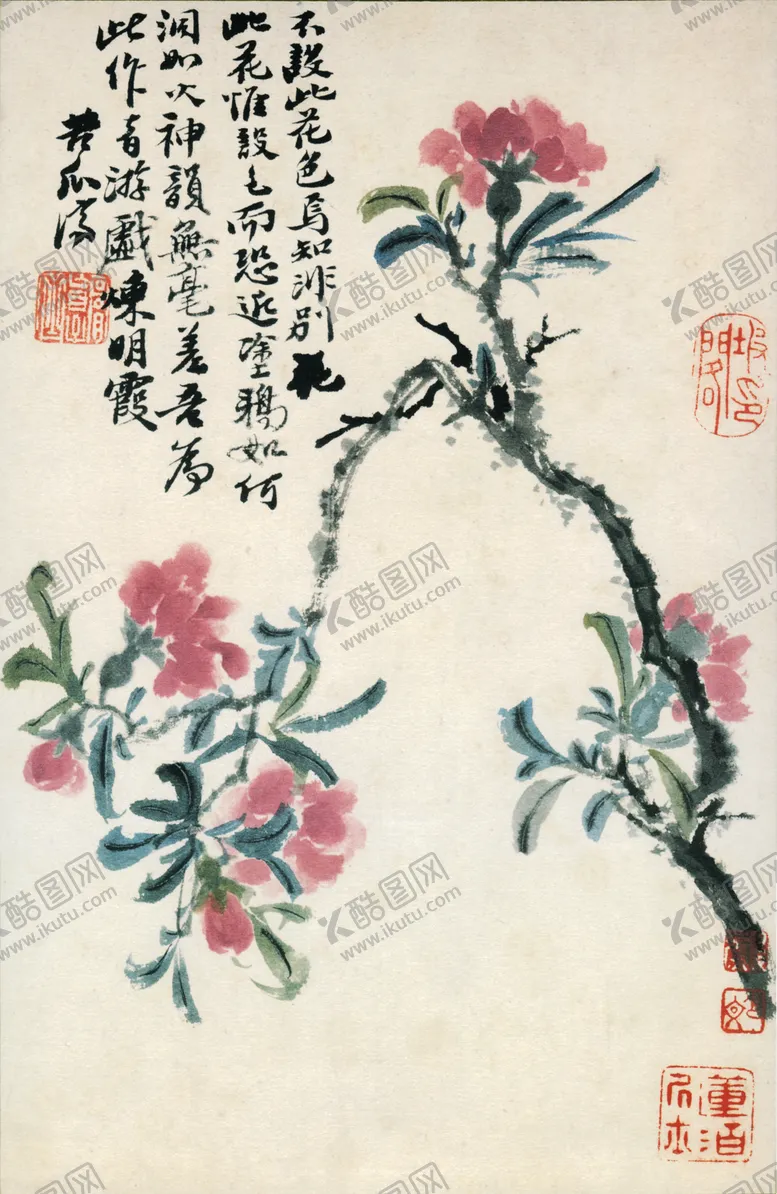 不設此花色焉知非別花
此花惟設色而恐近塗鴉如何
洞如火神韻無毫差吾為
此作音游戲煉明霞
苦瓜濟
酷图网
www.ikutu.com